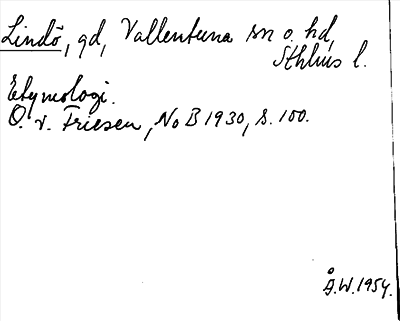 Lindö, gd, Vallentuna sn o. hd,
Sthlms l.
Etymologi.
O. v. Friesen, NoB 1930, s. 100.
Å.W. 1954.